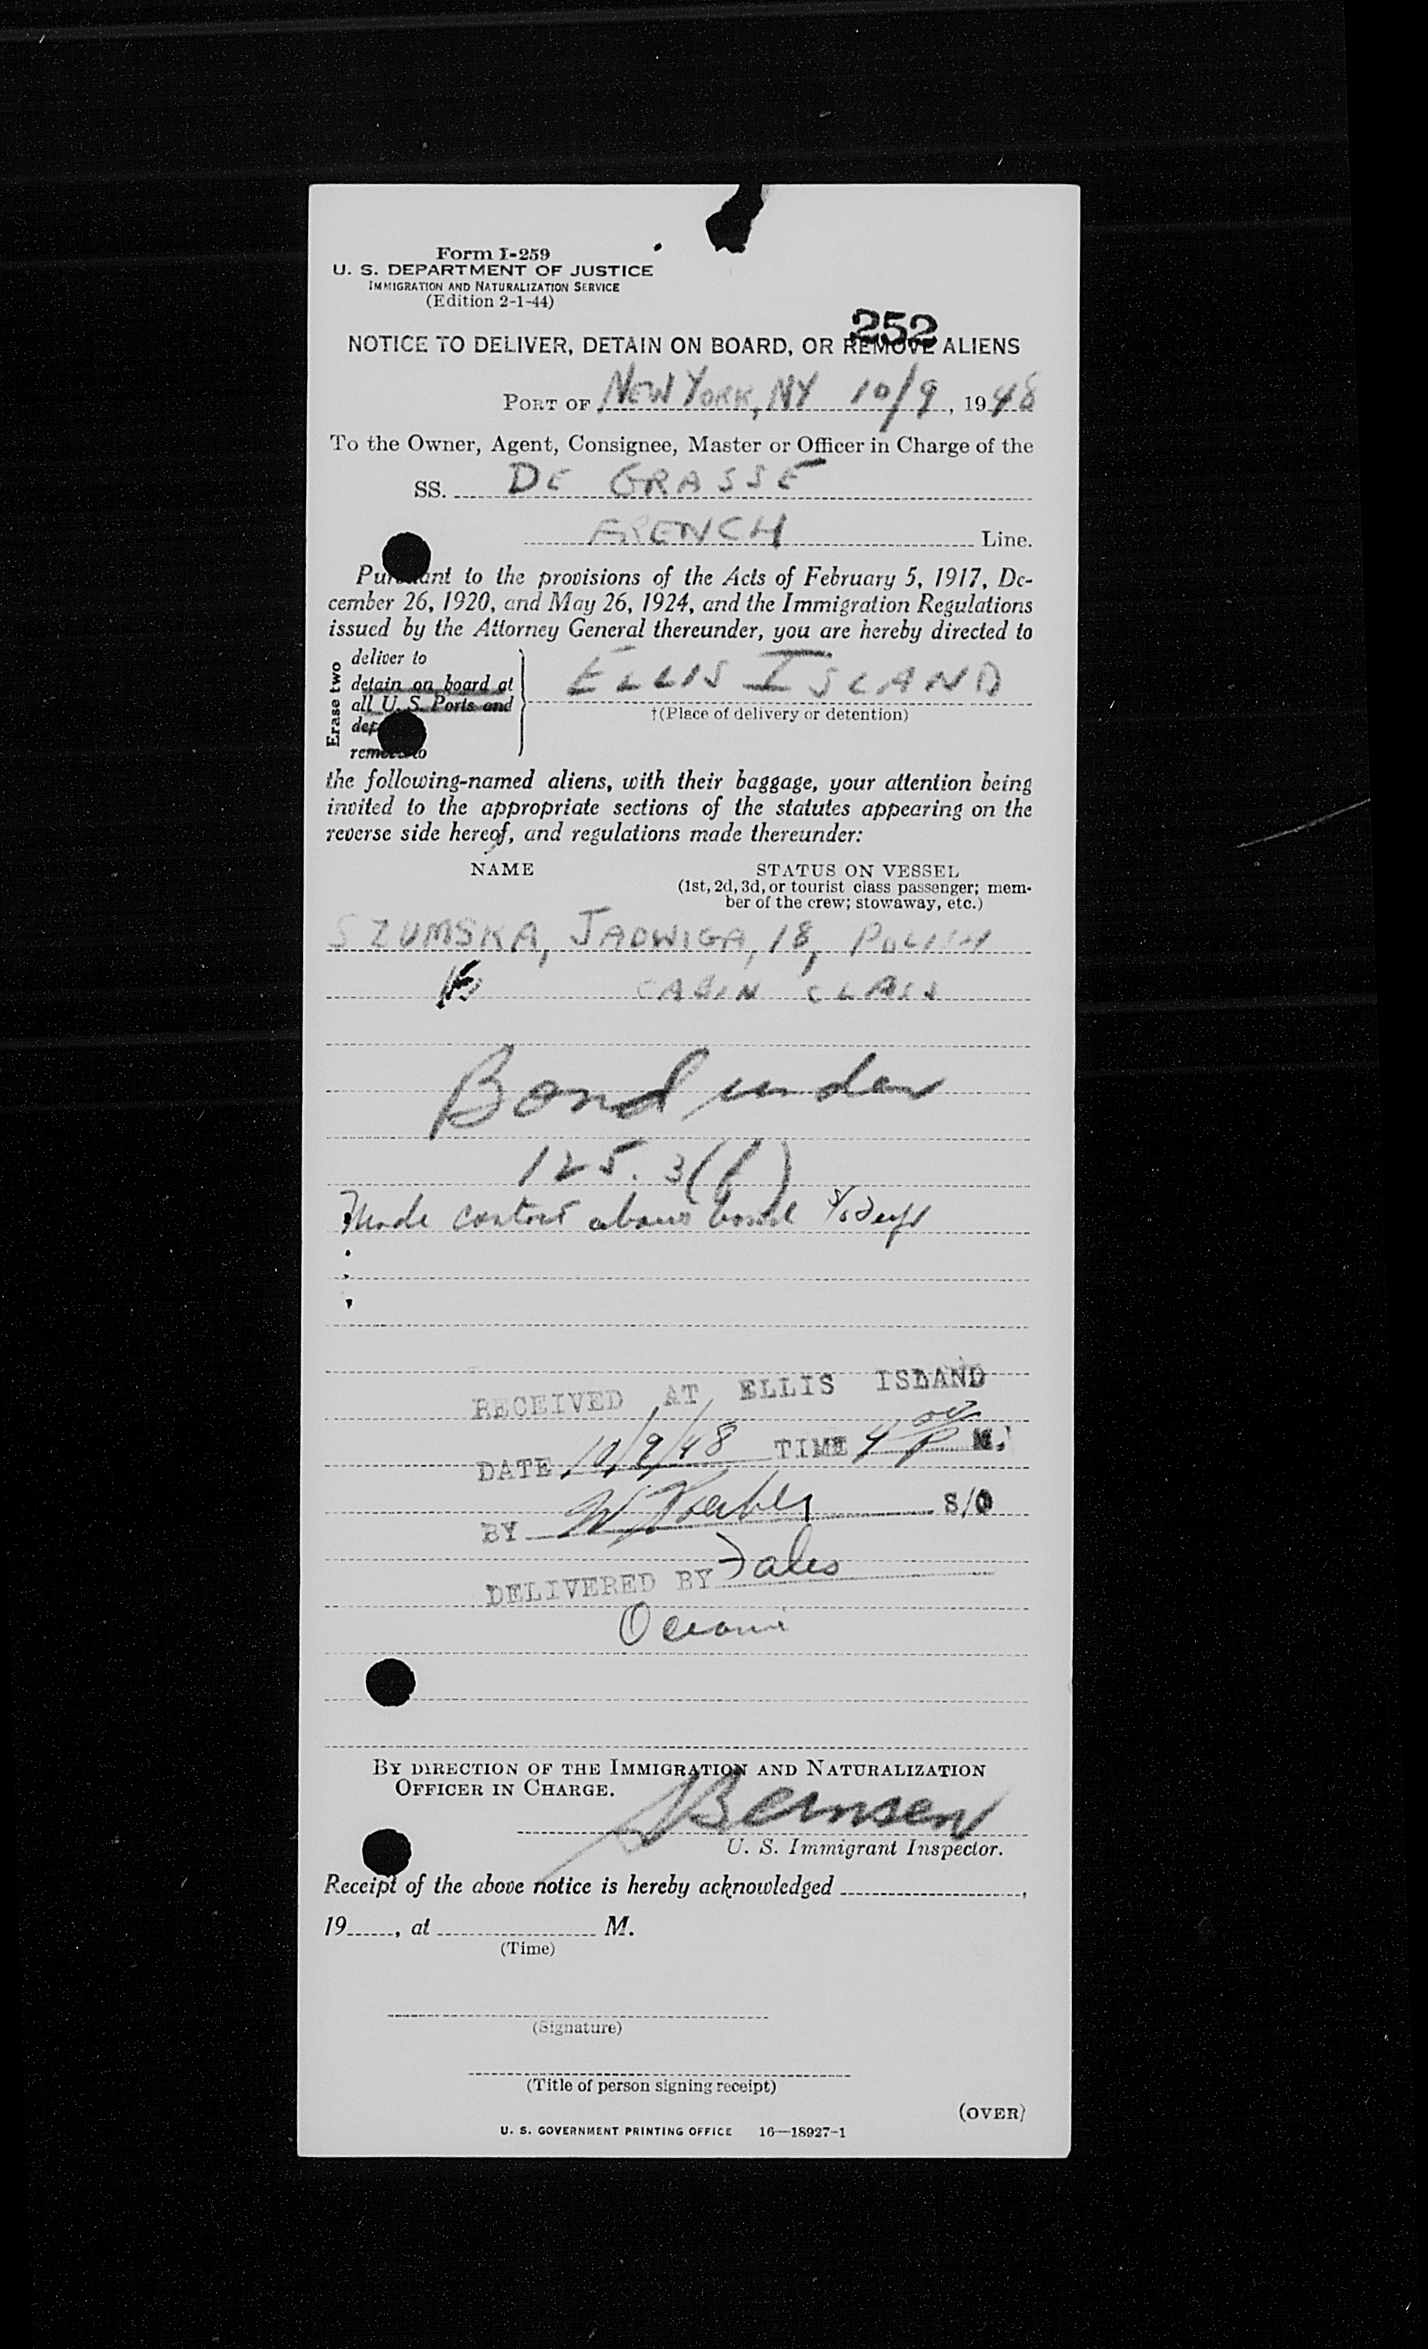 Form I-259
U. S. DEPARTMENT OF JUSTICE
IMMIGRATION AND NATURALIZATION SERVICE
(Edition 2-1-44)
252
NOTICE TO DELIVER, DETAIN ON BOARD, OR REMOVE ALIENS
PORT OF NEW YORK, NY 10/9, 1948
To the Owner, Agent, Consignee, Master or Officer in Charge of the
SS. DE GRASSE
FRENCH Line.
Pursuant to the provisions of the Acts of February 5, 1917, De-
cember 26, 1920, and May 26, 1924, and the Immigration Regulations
issued by the Attorney General thereunder, you are hereby directed to
Erase two
deliver to
detain on board at
all U. S. Ports and
remove to
ELLIS ISLAND
†(Place of delivery or detention)
the following-named aliens, with their baggage, your attention being
invited to the appropriate sections of the statutes appearing on the
reverse side hereof, and regulations made thereunder:
NAME STATUS ON VESSEL
(1st, 2d, 3d, or tourist class passenger; mem-
ber of the crew; stowaway, etc.)
SZUMSKA, JADWIGA, 18, POLISH
CABIN CLASS
Bond under
125.3(f)
Made contact about bond
RECEIVED AT ELLIS ISLAND
DATE 10/9/48 TIME 4 00 P M.
BY W S/O
DELIVERED BY Fales
BY DIRECTION OF THE IMMIGRATION AND NATURALIZATION
OFFICER IN CHARGE.
Bernsen
U. S. Immigrant Inspector.
Receipt of the above notice is hereby acknowledged ,
19 , at M.
(Time)
(Signature)
(Title of person signing receipt)
(OVER)
U. S. GOVERNMENT PRINTING OFFICE 16—18927-1